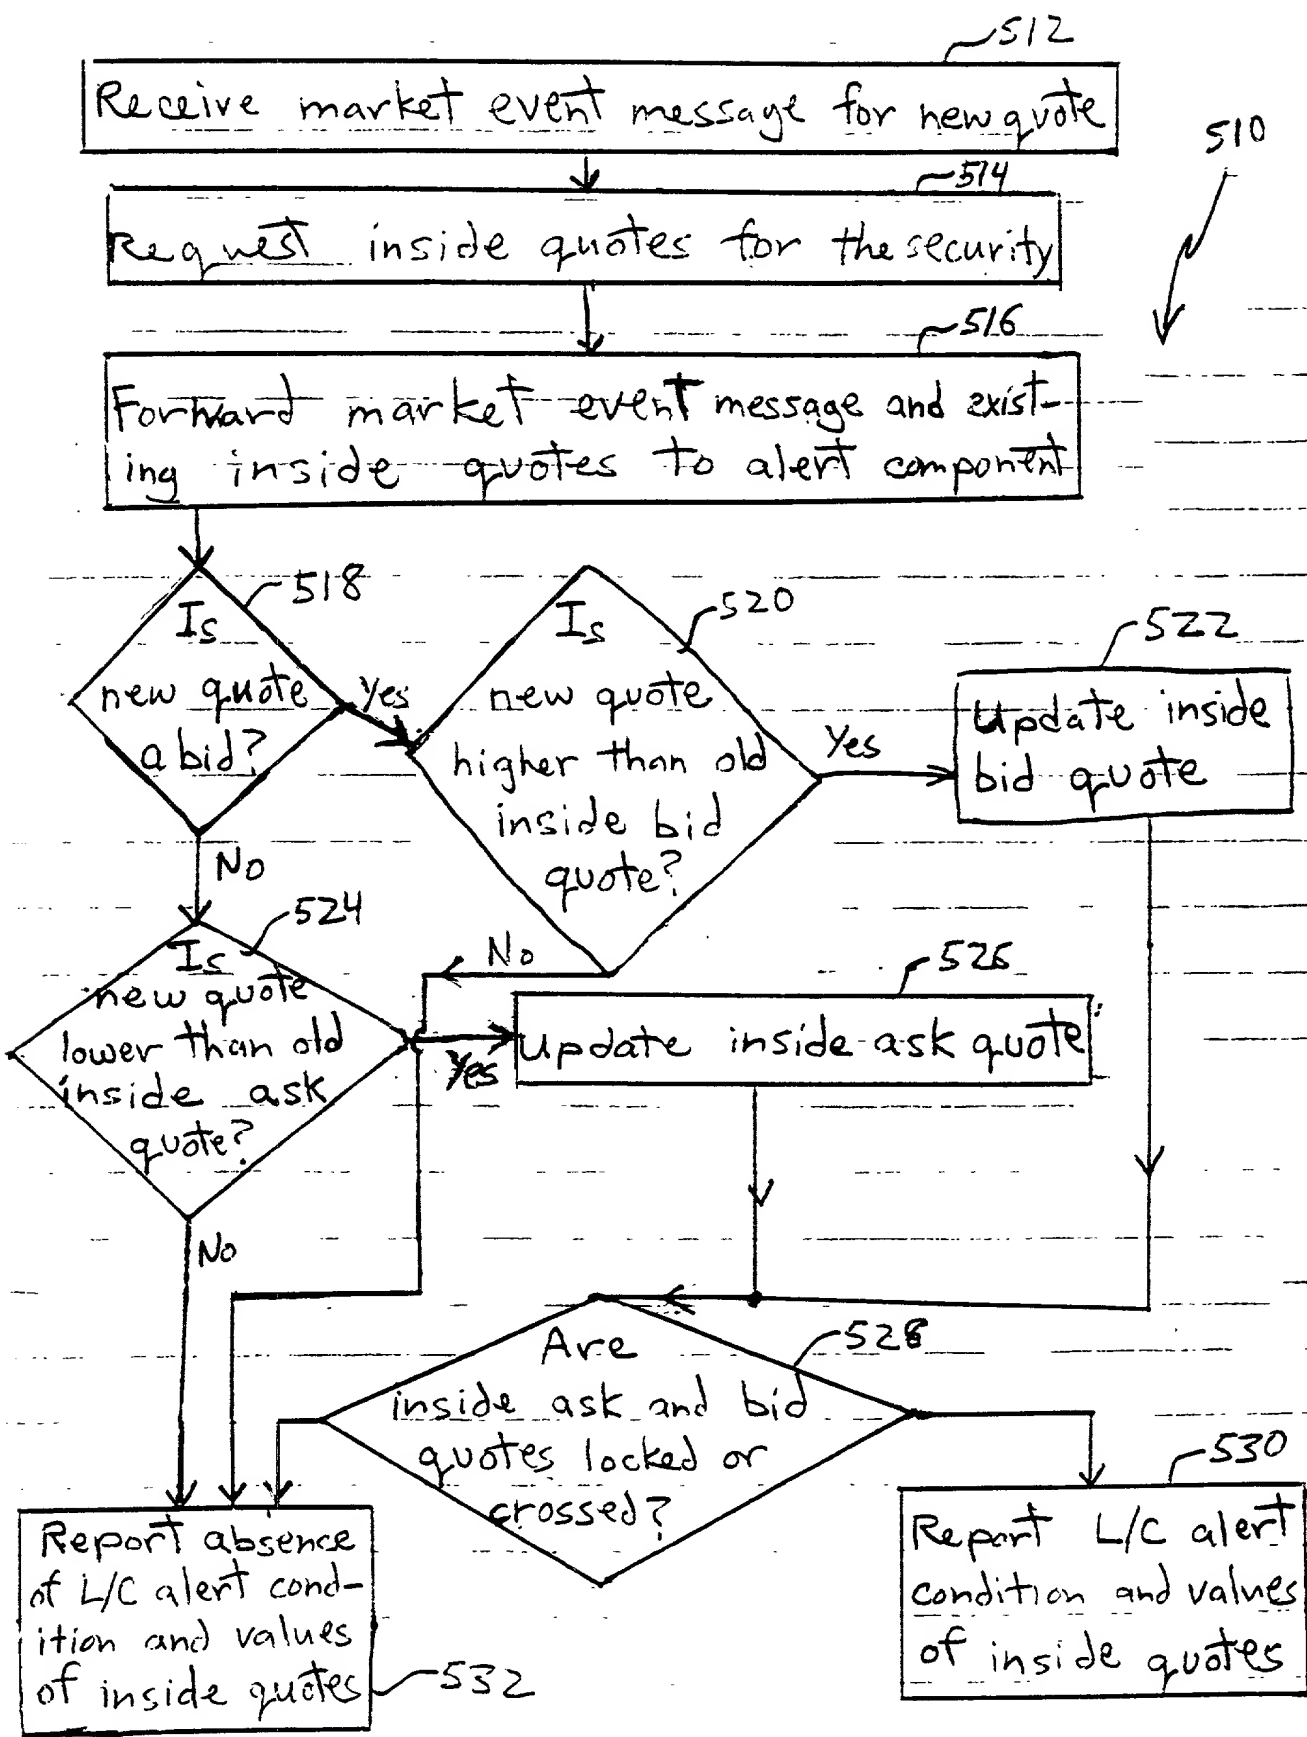 512
Receive market event message for new quote
510
514
Request inside quotes for the security
516
Forward market event message and exist-
ing inside quotes to alert component
518
Is
new quote
a bid?
Yes
520
Is
new quote
higher than old
inside bid
quote?
Yes
522
Update inside
bid quote
No
524
Is
new quote
lower than old
inside ask
quote?
No
526
Update inside ask quote
Yes
No
528
Are
inside ask and bid
quotes locked or
crossed?
530
Report L/C alert
condition and values
of inside quotes
Report absence
of L/C alert cond-
ition and values
of inside quotes
532